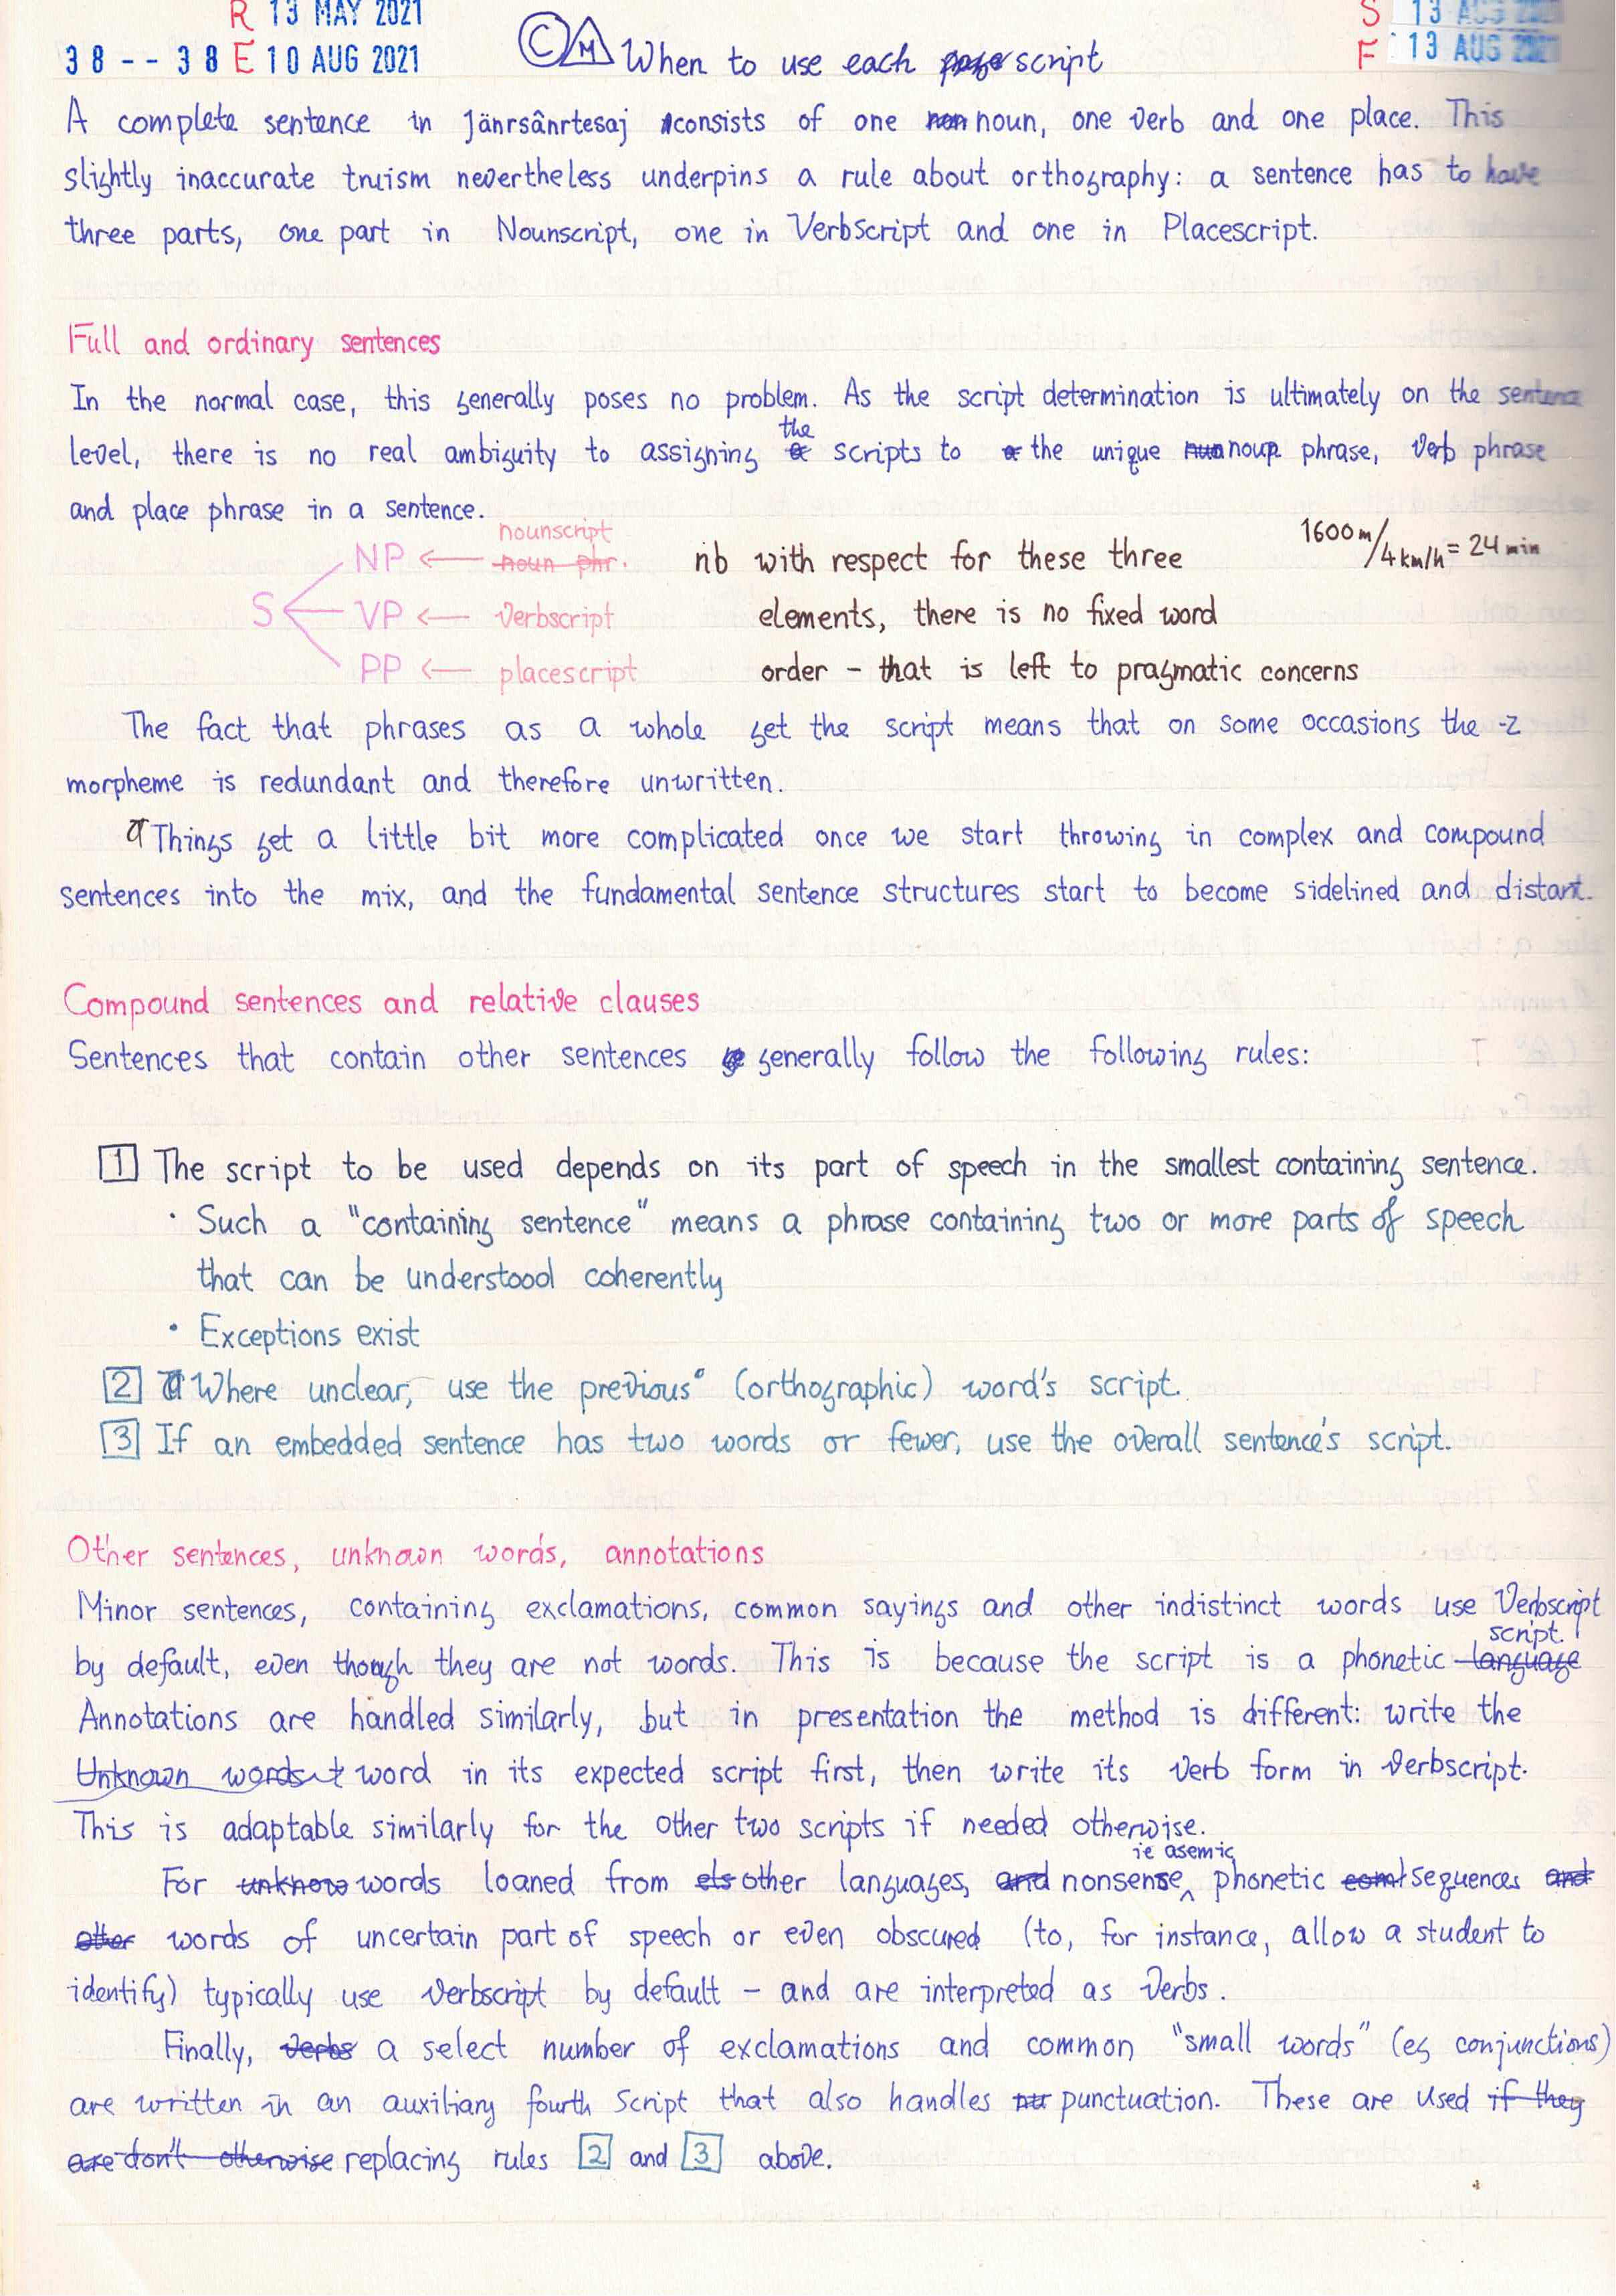 R 13 MAY 2021
38 -- 38 E 10 AUG 2021
S 13 AUG 2021
F 13 AUG 2021
C M When to use each page script
A complete sentence in Jänrsânrtesaj consists of one non noun, one verb and one place. This
slightly inaccurate truism nevertheless underpins a rule about orthography: a sentence has to have
three parts, one part in Nounscript, one in Verbscript and one in Placescript.
Full and ordinary sentences
In the normal case, this generally poses no problem. As the script determination is ultimately on the sentence
level, there is no real ambiguity to assigning the scripts to the unique noun phrase, verb phrase
and place phrase in a sentence.
S
NP ← nounscript noun phr.
VP ← verbscript
PP ← placescript
nb with respect for these three
elements, there is no fixed word
order – that is left to pragmatic concerns
1600m/4km/h = 24 min
The fact that phrases as a whole get the script means that on some occasions the -z
morpheme is redundant and therefore unwritten.
Things get a little bit more complicated once we start throwing in complex and compound
sentences into the mix, and the fundamental sentence structures start to become sidelined and distant.
Compound sentences and relative clauses
Sentences that contain other sentences generally follow the following rules:
1 The script to be used depends on its part of speech in the smallest containing sentence.
· Such a "containing sentence" means a phrase containing two or more parts of speech
that can be understood coherently
· Exceptions exist
2 Where unclear, use the previous (orthographic) word's script.
3 If an embedded sentence has two words or fewer, use the overall sentence's script.
Other sentences, unknown words, annotations
Minor sentences, containing exclamations, common sayings and other indistinct words use Verbscript
by default, even though they are not words. This is because the script is a phonetic language script.
Annotations are handled similarly, but in presentation the method is different: write the
Unknown words word in its expected script first, then write its verb form in verbscript.
This is adaptable similarly for the other two scripts if needed otherwise.
For unknow words loaned from els other languages, and nonsense, ie asemic phonetic sequences and
other words of uncertain part of speech or even obscured (to, for instance, allow a student to
identify) typically use verbscript by default – and are interpreted as verbs.
Finally, verbs a select number of exclamations and common "small words" (eg conjunctions)
are written in an auxiliary fourth script that also handles punctuation. These are used if they
are don't otherwise replacing rules 2 and 3 above.